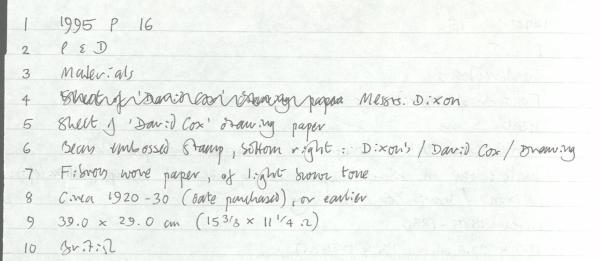 1 1995 P 16
2 P & D
3 Materials
4 Sheet of 'David Cox' drawing paper Messrs. Dixon
5 Sheet of 'David Cox' drawing paper
6 Bears embossed stamp, bottom right: Dixon's / David Cox / Drawing
7 Fibrous wove paper, of light brown tone
8 Circa 1920-30 (date purchased), or earlier
9 39.0 x 29.0 cm (15 3/8 x 11 1/4
10 British